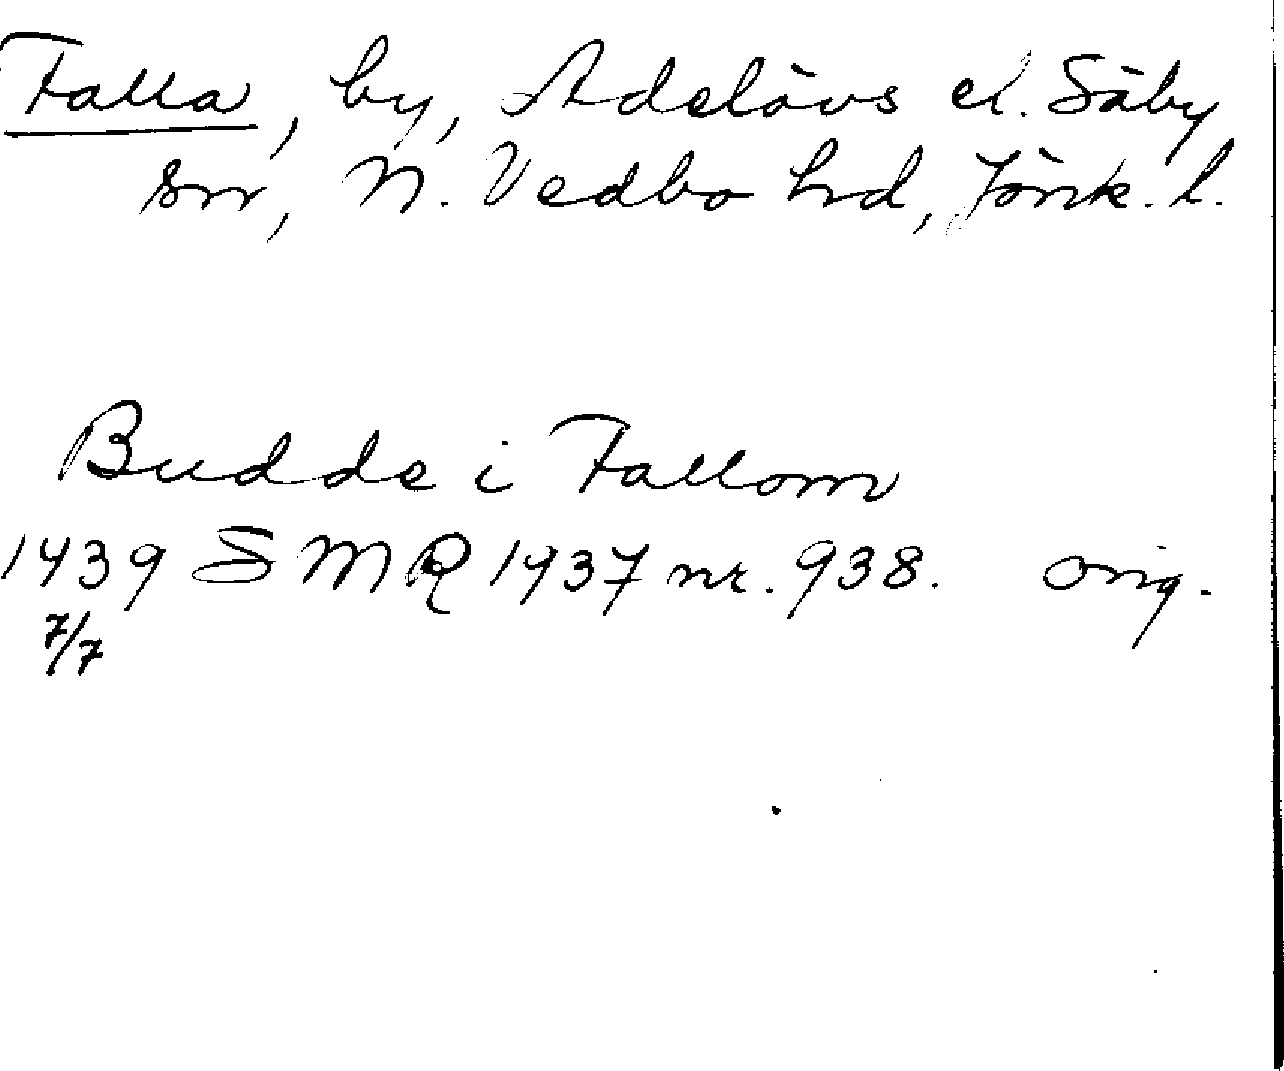 Falla, by, Adelövs el. Säby
snr, N. Vedbo hrd, Jönk. l.
Budde i Fallom
1439 SMR 1937 nr. 938. orig.
7/7